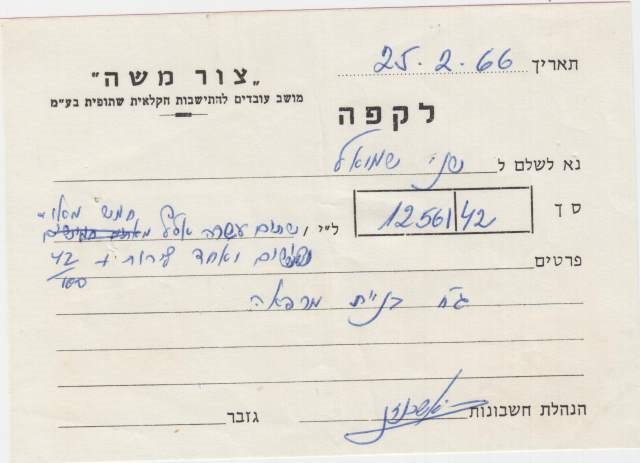 תאריך 25.2.66
„צור משה"
מושב עובדים להתישבות חקלאית שתופית בע"מ
לקפה
נא לשלם ל שני שמואל
ס ך 12561 42
חמש מאות
ל"י שתים עשרה אלף
פרטים ששים ואחד לירות + 42/100
ע"ח בניית מרפאה
הנהלת חשבונות
גזבר